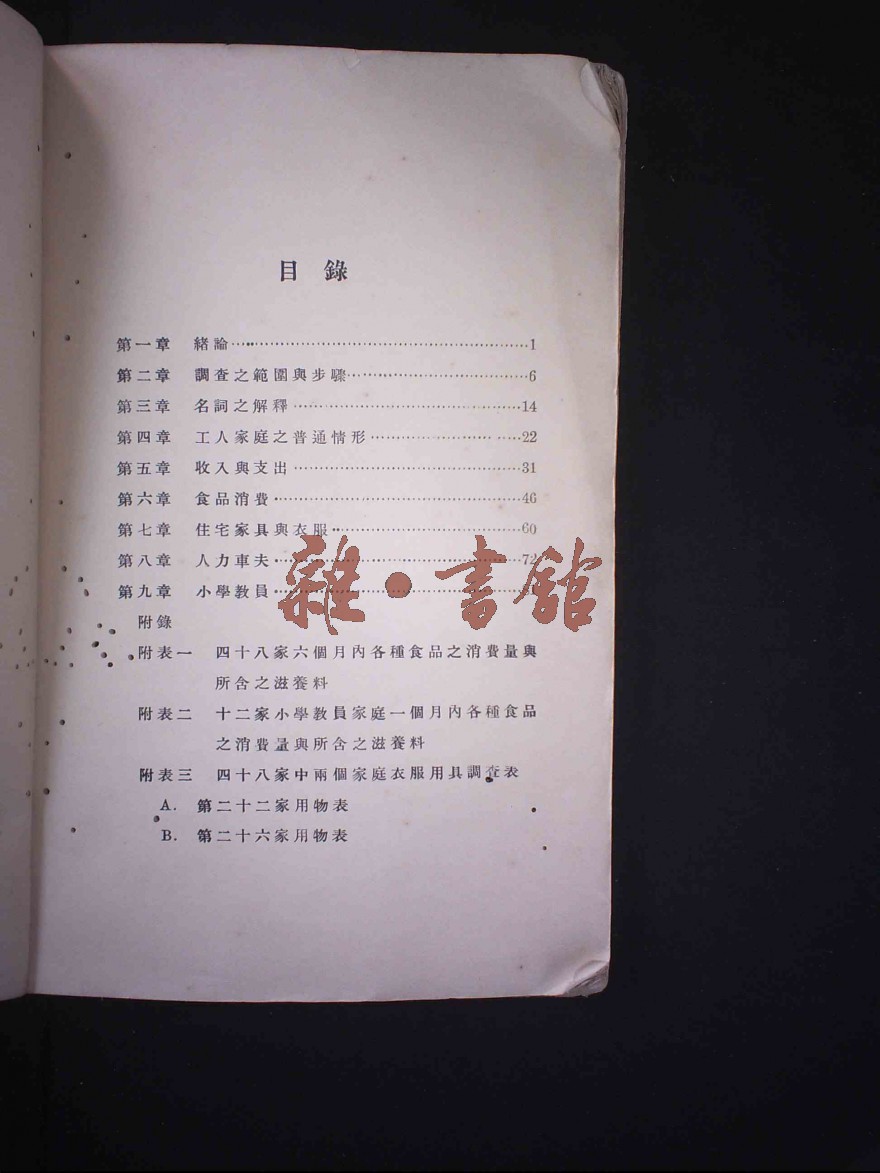 目錄
第一章 緒論 1
第二章 調查之範圍與步驟 6
第三章 名詞之解釋 14
第四章 工人家庭之普通情形 22
第五章 收入與支出 31
第六章 食品消費 46
第七章 住宅家具與衣服 60
第八章 人力車夫 72
第九章 小學教員
雜·書館
附錄
附表一 四十八家六個月內各種食品之消費量與
所含之滋養料
附表二 十二家小學教員家庭一個月內各種食品
之消費量與所含之滋養料
附表三 四十八家中兩個家庭衣服用具調查表
A. 第二十二家用物表
B. 第二十六家用物表